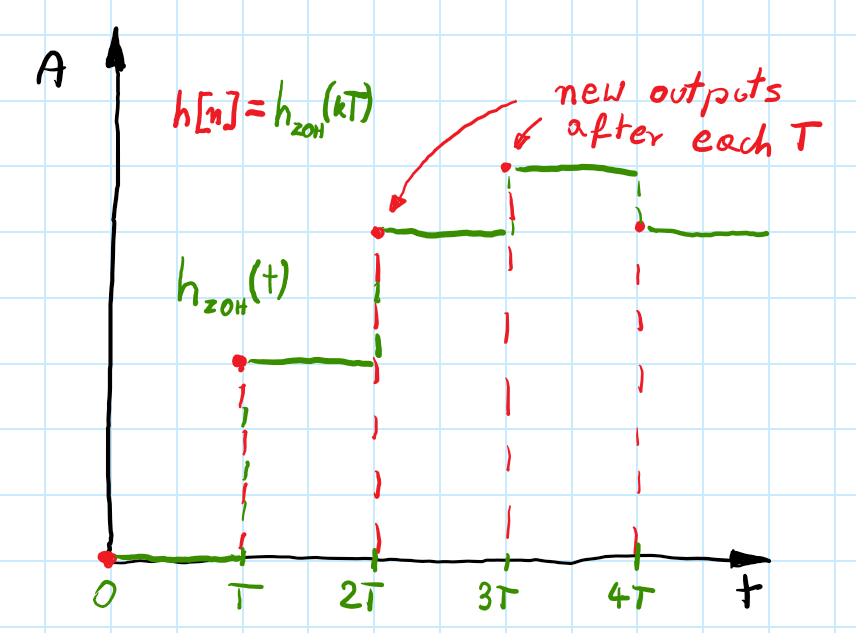 A
h[n] = h_ZOH(kT)
new outputs
after each T
h_ZOH(t)
0 T 2T 3T 4T t